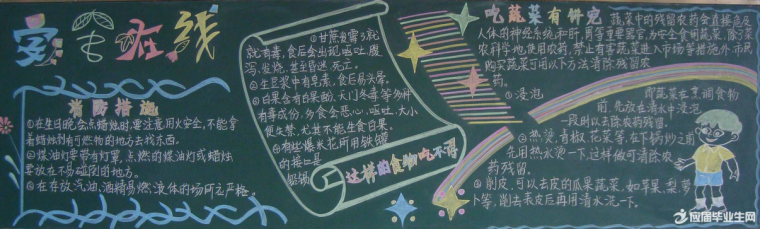 安全在线
消防措施
①在生日晚会点蜡烛时,要注意用火安全,不能拿
着蜡烛到有可燃物的地方去找东西。
②煤油灯要带有灯罩,点燃的煤油灯或蜡烛
要放在不易碰倒的地方。
③在存放汽油、酒精易燃液体的场所空严格。
①甘蔗发霉了就
就有毒,食后会出现呕吐腹
泻,发烧,甚至昏迷,死亡。
②生豆浆中有皂素,食后易头晕。
③白果含有白果酚、天门冬毒等多种
有毒成份,多食会恶心、呕吐、大小
便失禁,尤其不能生食白果。
④有些爆米花所用铁罐
的接口是
铅锡
这样的食物吃不得
吃蔬菜有讲究
蔬菜中的残留农药会直接危及
人体的神经系统和肝、肾等重要器官,为安全食用蔬菜,除了菜
农科学地使用农药,禁止有害蔬菜进入市场等措施外,市民
购买蔬菜可用以下方法清除残留农
药。
①浸泡
即蔬菜在烹调食物
前,先放在清水中浸泡
一段时以去除农药残留。
②热烫,青椒、花菜等,在下锅炒之前
先用热水烫一下,这样做可清除农
药残留。
③削皮,可以去皮的瓜果蔬菜,如苹果、梨、萝
卜等,削去表皮后再用清水泡一下。
应届毕业生网